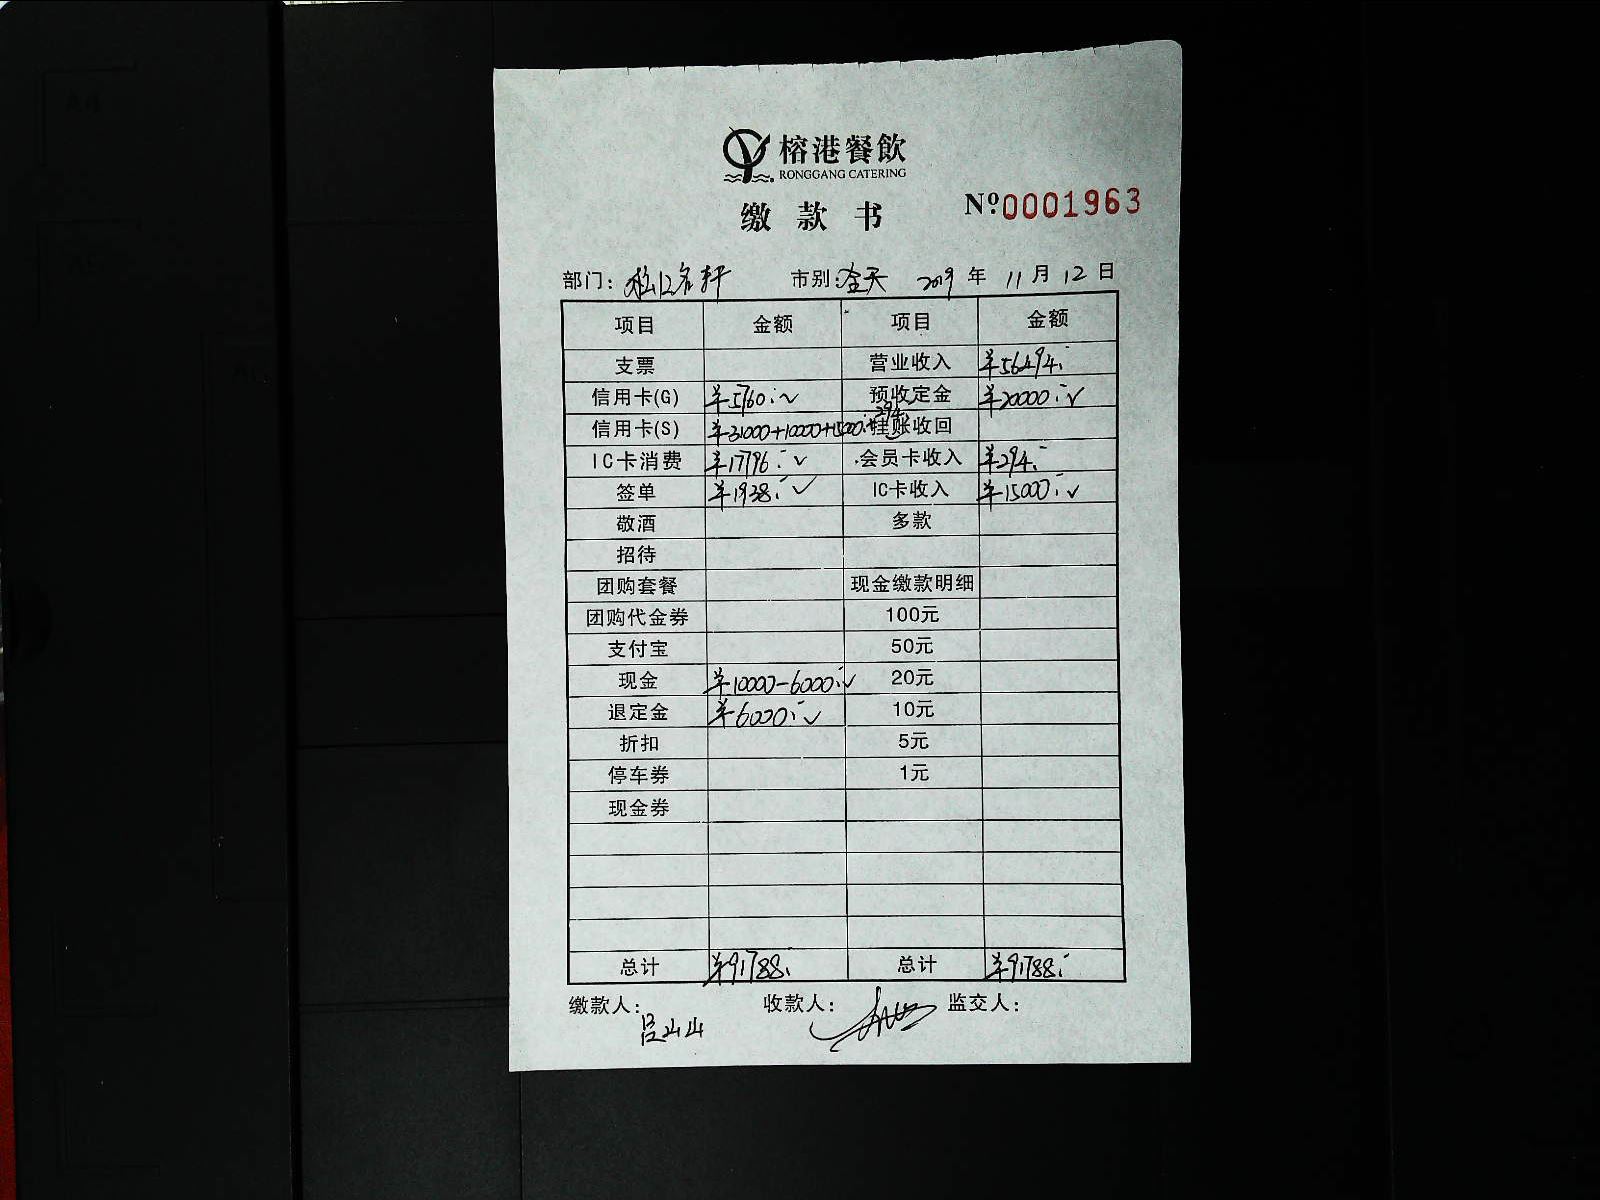 榕港餐飲
RONGGANG CATERING
缴款书 Nº:0001963
部门: 名轩 市别:全天 2019年11月12日
项目 金额 项目 金额
支票 营业收入 ¥56494.-
信用卡(G) ¥5760.-✓ 预收定金 ¥20000.-✓
信用卡(S) ¥31000+10000+15000.+294.- 挂账收回
IC卡消费 ¥17796.-✓ 会员卡收入 ¥294.-
签单 ¥1938.-✓ IC卡收入 ¥15000.-✓
敬酒 多款
招待
团购套餐 现金缴款明细
团购代金券 100元
支付宝 50元
现金 ¥10000-6000.-✓ 20元
退定金 ¥6000.-✓ 10元
折扣 5元
停车券 1元
现金券
总计 ¥91788.- 总计 ¥91788.-
缴款人: 吕山山 收款人: 监交人: